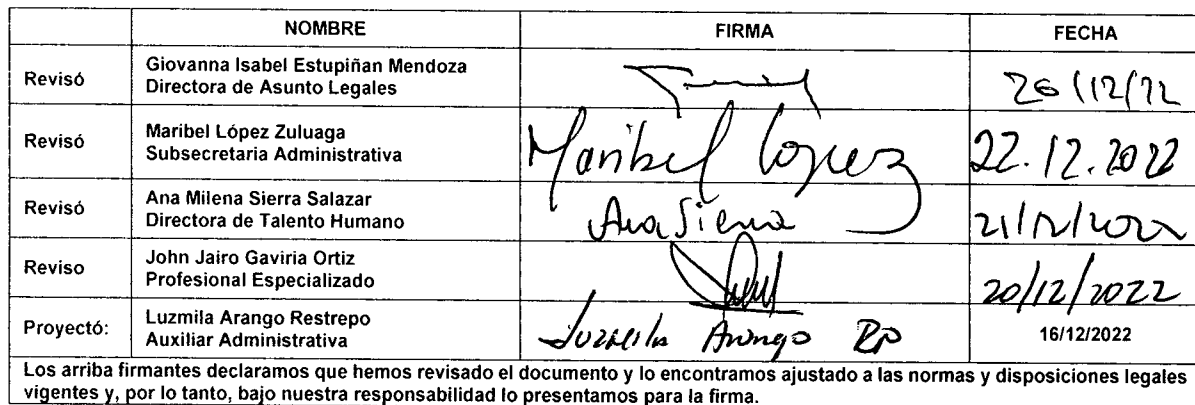 NOMBRE FIRMA FECHA
Revisó Giovanna Isabel Estupiñan Mendoza
Directora de Asunto Legales 26/12/22
Revisó Maribel López Zuluaga
Subsecretaria Administrativa Maribel López 22.12.2022
Revisó Ana Milena Sierra Salazar
Directora de Talento Humano Ana Sierra 21/12/2022
Reviso John Jairo Gaviria Ortiz
Profesional Especializado 20/12/2022
Proyectó: Luzmila Arango Restrepo
Auxiliar Administrativa Luzmila Arango 16/12/2022
Los arriba firmantes declaramos que hemos revisado el documento y lo encontramos ajustado a las normas y disposiciones legales
vigentes y, por lo tanto, bajo nuestra responsabilidad lo presentamos para la firma.